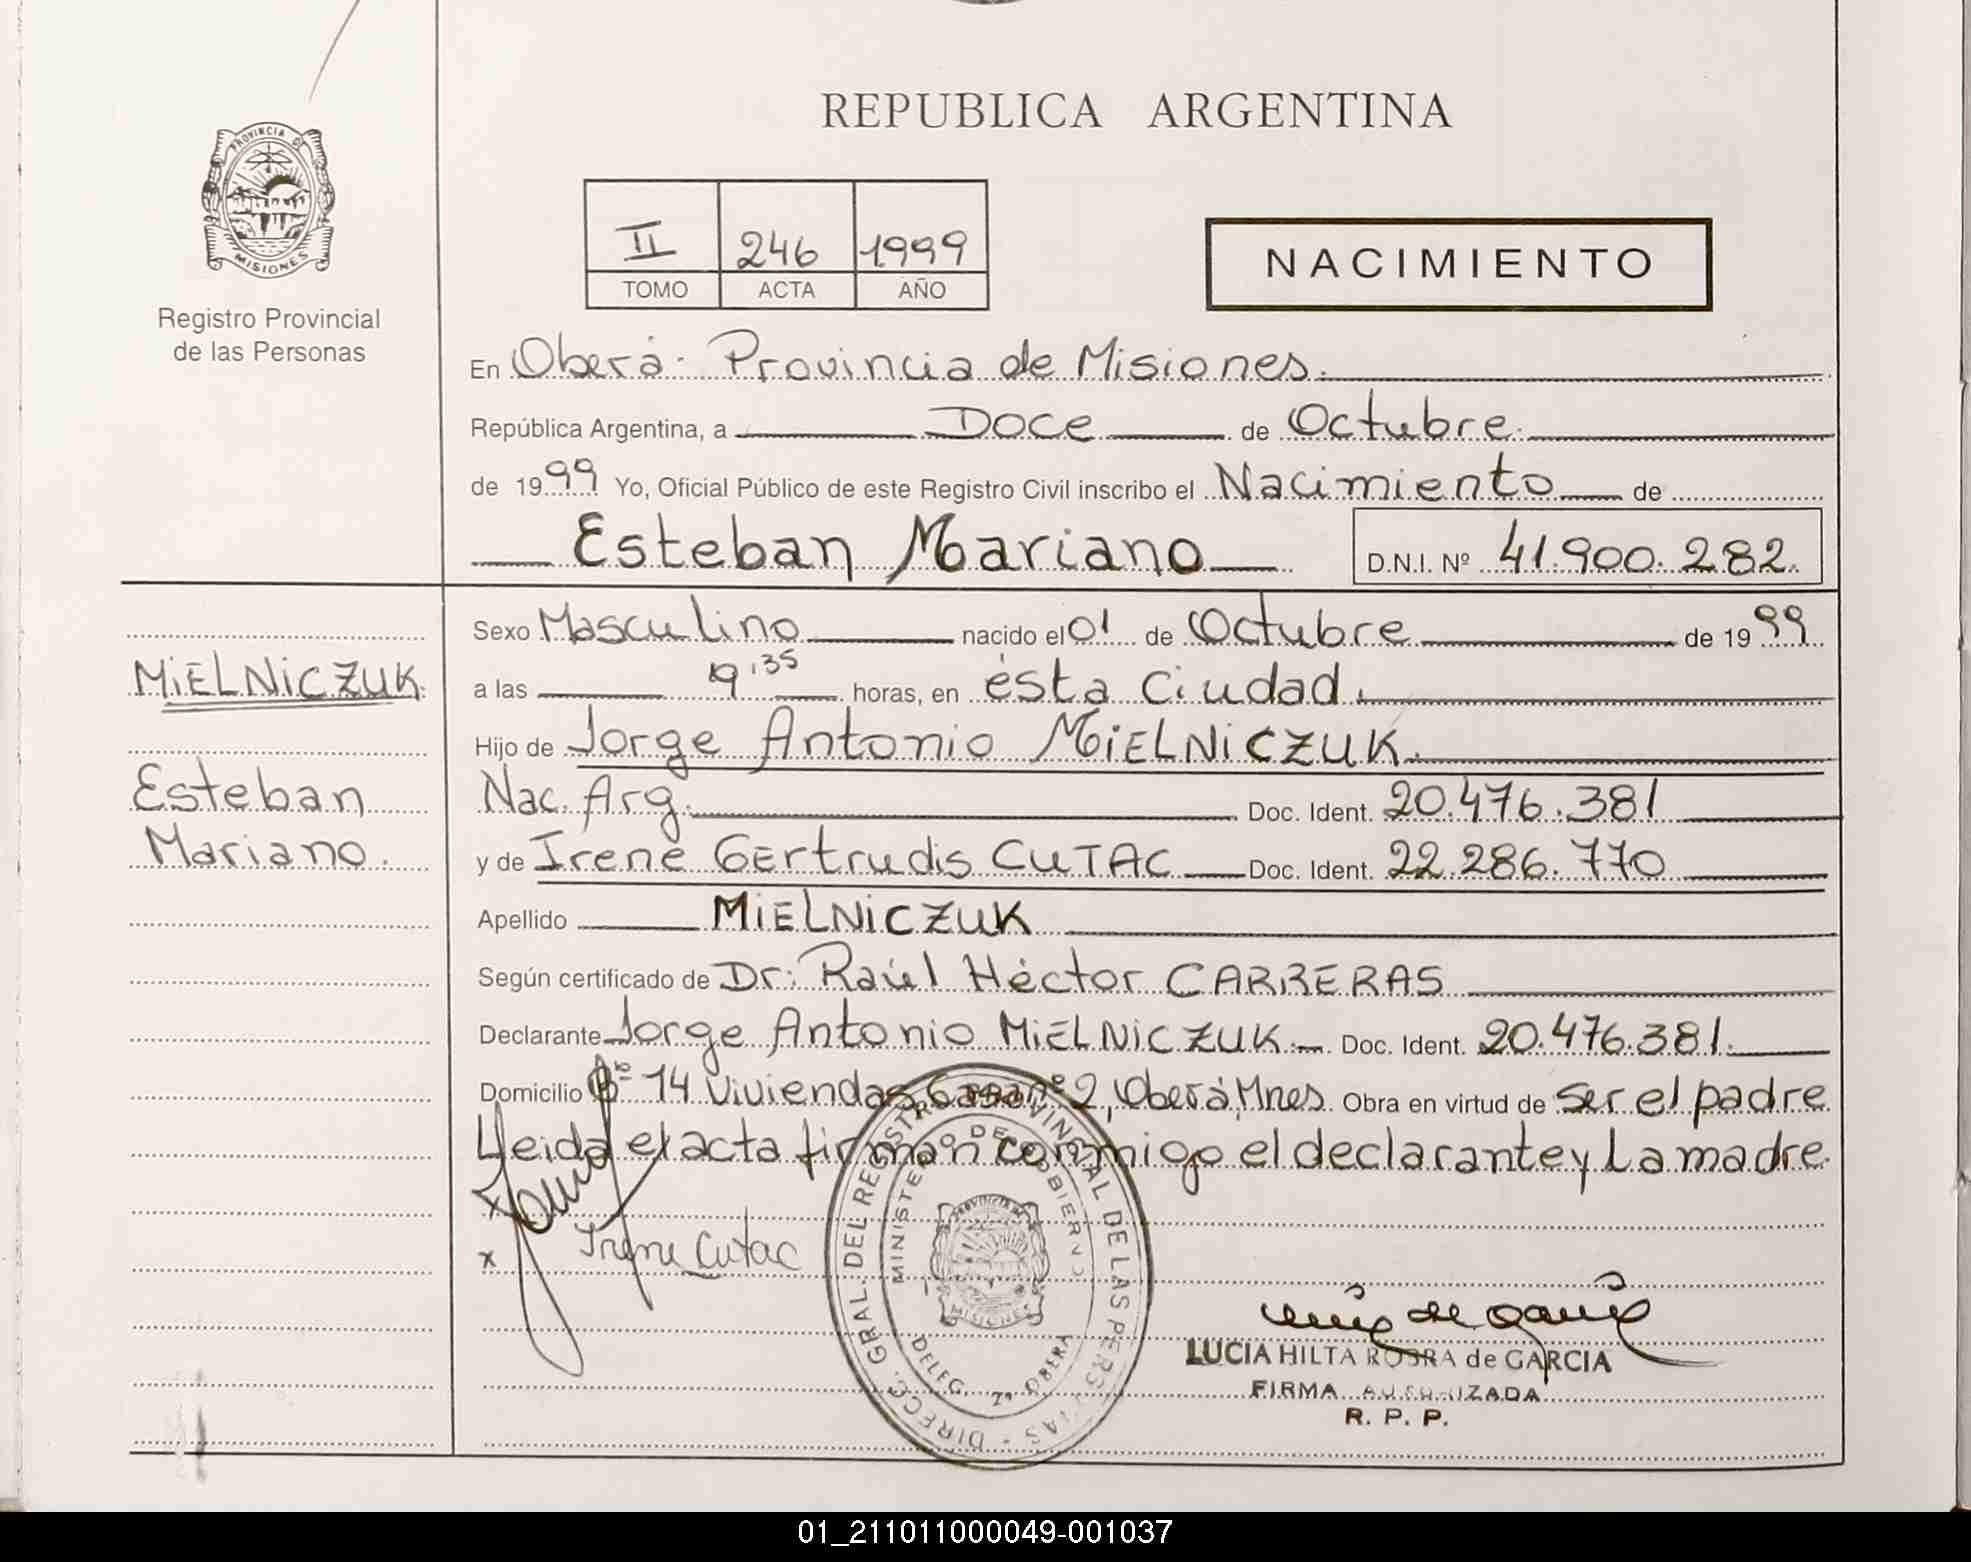 REPUBLICA ARGENTINA
PROVINCIA DE
MISIONES
Registro Provincial
de las Personas
II 246 1999
TOMO ACTA AÑO
NACIMIENTO
En Oberá - Provincia de Misiones.
República Argentina, a Doce de Octubre
de 1999 Yo, Oficial Público de este Registro Civil inscribo el Nacimiento de
Esteban Mariano D.N.I. Nº 41.900.282.
MiELNiCZUK
Esteban
Mariano.
Sexo Masculino nacido el 01 de Octubre de 1999
a las 9:35 horas, en ésta Ciudad.
Hijo de Jorge Antonio MiELNiCZUK.
Nac. Arg. Doc. Ident. 20.476.381
y de Irene Gertrudis CUTAC Doc. Ident. 22.286.770
Apellido MiELNiCZUK
Según certificado de Dr: Raúl Héctor CARRERAS
Declarante Jorge Antonio MiELNiCZUK Doc. Ident. 20.476.381.
Domicilio Bº 14 Viviendas Casa nº 2, Oberá, Mnes. Obra en virtud de ser el padre
Leida el acta firman conmigo el declarante y La madre.
x
x Irene Cutac
DIRECC. GRAL. DEL REGISTRO PROVINCIAL DE LAS PERSONAS
MINISTERIO DE GOBIERNO
PROVINCIA DE
MISIONES
DELEG. 2ª OBERA
LUCIA HILTA de GARCIA
FIRMA AUTORIZADA
R. P. P.
01_211011000049-001037